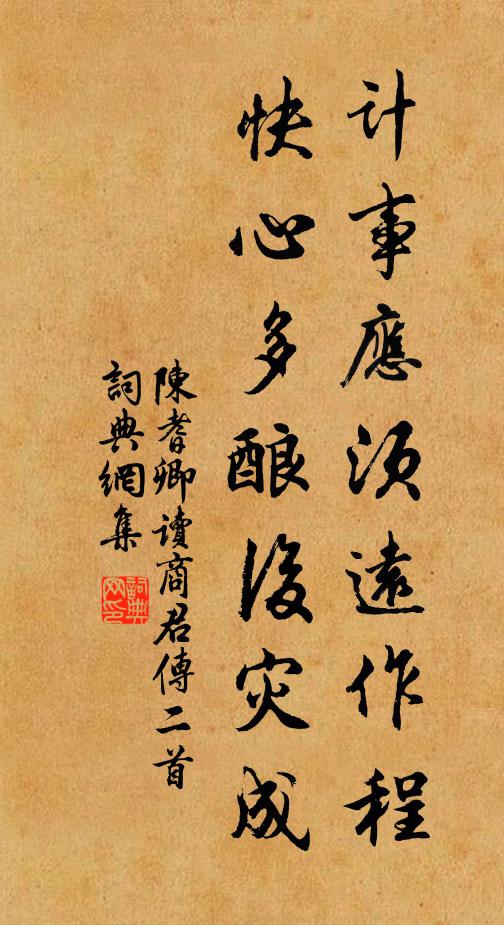 计事應須遠作程
快心多酿後灾成
陳耆卿讀商君傳二首
詞典網集
詞典网印